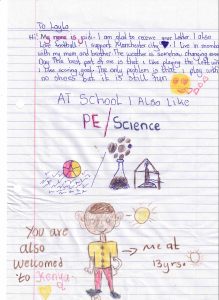 To Layla
Hi! My name is judi. I am glad to receive your Letter. I also
Love football. I support Manchester city. I live in mombasa
with my mum and brother. The weather is somehow changing every
Day. The best part of me is that I like playing the left wing
I like scoring goals. The only problem is that i play with
no shoes but it is still fun
AT School I Also like
PE/Science
You are
also
Welcomed
to Kenya.
me at
13yrs.